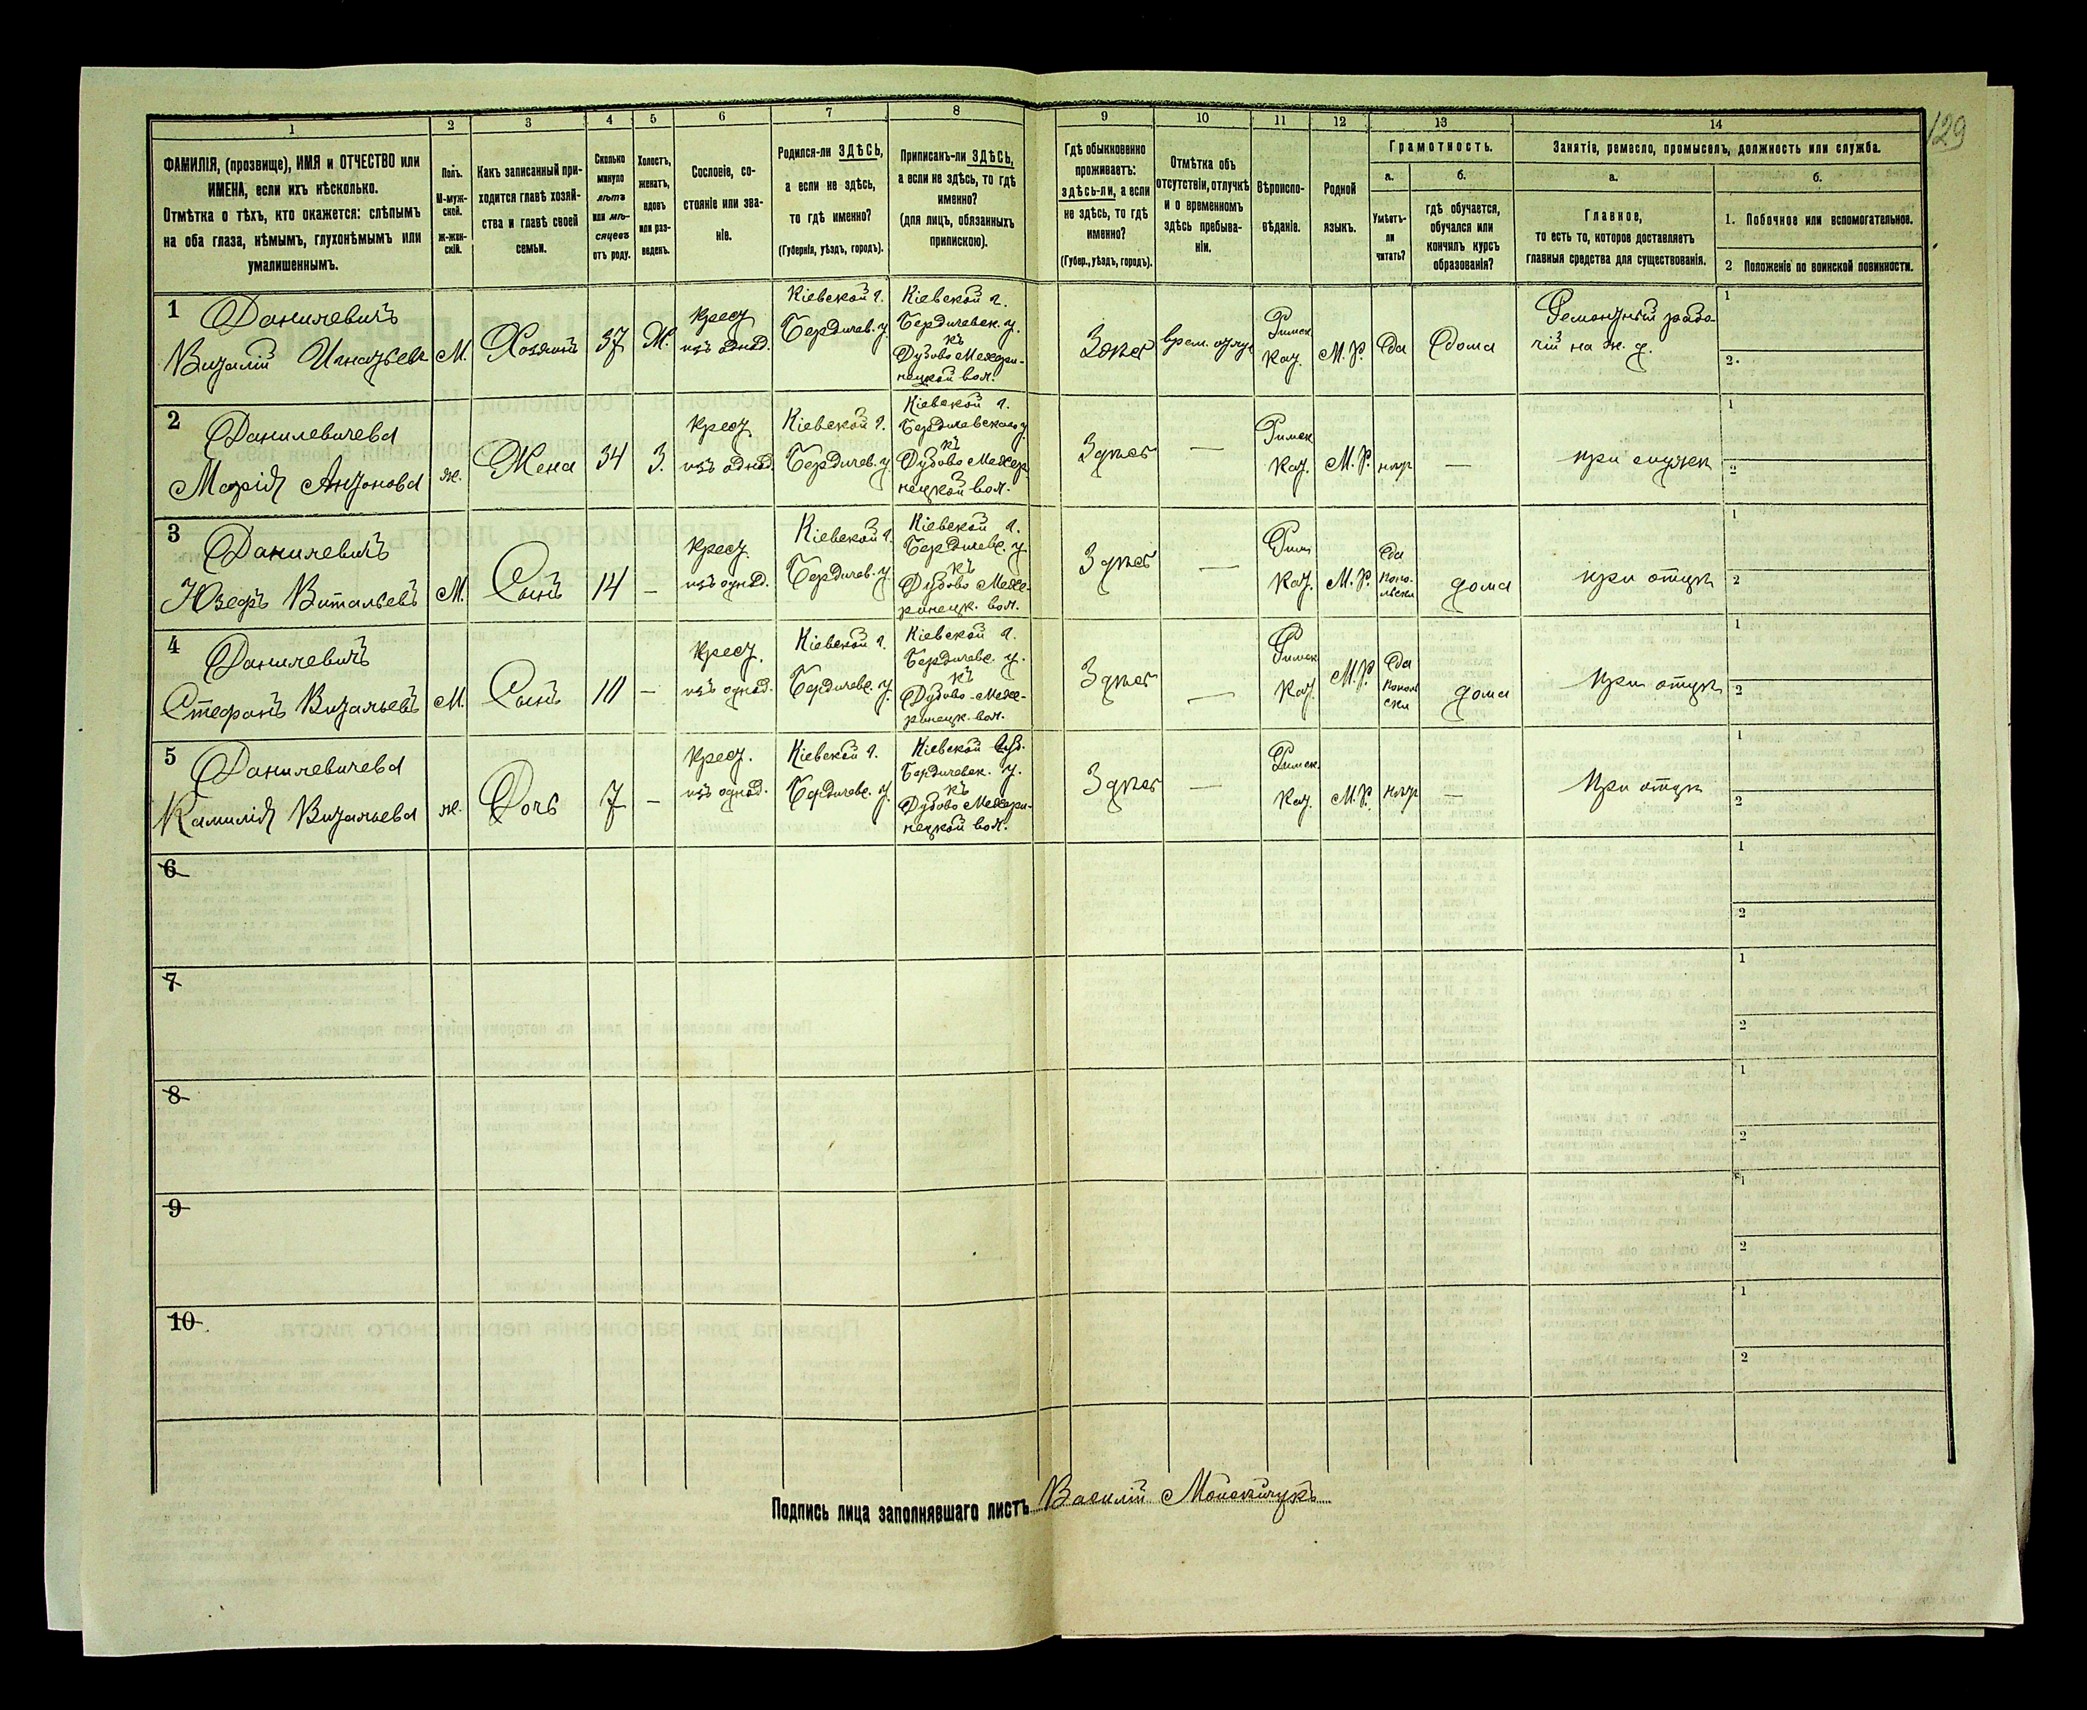 129
1
2
3
4
5
6
7
8
9
10
11
12
13
14
ФАМИЛІЯ, (прозвище), ИМЯ и ОТЧЕСТВО или
ИМЕНА, если ихъ нѣсколько.
Отмѣтка о тѣхъ, кто окажется: слѣпымъ
на оба глаза, нѣмымъ, глухонѣмымъ или
умалишеннымъ.
Полъ.
М-муж-
ской.
ж-жен-
скій.
Какъ записанный при-
ходится главѣ хозяй-
ства и главѣ своей
семьи.
Сколько
минуло
лѣтъ
или мѣ-
сяцевъ
отъ роду.
Холостъ,
женатъ,
вдовъ
или раз-
веденъ.
Сословіе, со-
стояніе или зва-
ніе.
Родился-ли ЗДѢСЬ,
а если не здѣсь,
то гдѣ именно?
(Губернія, уѣздъ, городъ).
Приписанъ-ли ЗДѢСЬ,
а если не здѣсь, то гдѣ
именно?
(для лицъ, обязанныхъ
припискою).
Гдѣ обыкновенно
проживаетъ:
здѣсь-ли, а если
не здѣсь, то гдѣ
именно?
(Губер., уѣздъ, городъ).
Отмѣтка объ
отсутствіи, отлучкѣ
и о временномъ
здѣсь пребыва-
ніи.
Вѣроиспо-
вѣданіе.
Родной
языкъ.
Грамотность.
а.
Умѣетъ-
ли
читать?
б.
гдѣ обучается,
обучался или
кончилъ курсъ
образованія?
Занятіе, ремесло, промыселъ, должность или служба.
а.
Главное,
то есть то, которое доставляетъ
главныя средства для существованія.
б.
1. Побочное или вспомогательное.
2 Положеніе по воинской повинности.
1
Данилевичъ
Виталій Игнатьев
М.
Хозяинъ
37
Ж.
Крест.
изъ однод.
Кіевской г.
Бердичев. у.
Кіевской г.
Бердичевск. у.
къ
Дубово Межири-
нецкой вол.
Здѣсь
врем. отлуч
Римск
Кат.
М. Р.
Да
Дома
Ремонтный рабо-
чій на ж. д.
1
2.
2
Данилевичева
Марія Антонова
ж.
Жена
34
З.
Крест.
изъ однод.
Кіевской г.
Бердичев. у.
Кіевской г.
Бердичевского у
къ
Дубово Межер
нецкой вол.
Здѣсь
—
Римск
Кат.
М. Р.
нѣтъ
—
при мужѣ
1
2
3
Данилевичъ
Юзефъ Витальевъ
М.
Сынъ
14
—
Крест.
изъ однод.
Кіевской г.
Бердичев. у.
Кіевской г.
Бердичевс. у
къ
Дубово Меже-
ринецк. вол.
Здѣсь
—
Рим
Кат.
М. Р.
Да
попо-
льски
дома
при отцѣ
1
2
4
Данилевичъ
Стефанъ Витальевъ
М.
Сынъ
10
—
Крест.
изъ однод.
Кіевской г.
Бердичевс. у.
Кіевской г.
Бердичевс. у.
къ
Дубово-Меже-
ринецк. вол.
Здѣсь
—
Римск
Кат.
М. Р.
Да
попол
ски
дома
при отцѣ
1
2
5
Данилевичева
Камилія Витальева
ж.
Дочь
7
—
Крест.
изъ однод.
Кіевской г.
Бердичевс. у.
Кіевской Губ.
Бердичевск. у.
къ
Дубово Межери-
нецкой вол.
Здѣсь
—
Римск.
Кат.
М. Р.
нѣтъ
—
При отцѣ
1
2
6
1
2
7
1
2
8
1
2
9
1
2
10
1
2
Подпись лица заполнявшаго листъ Василій